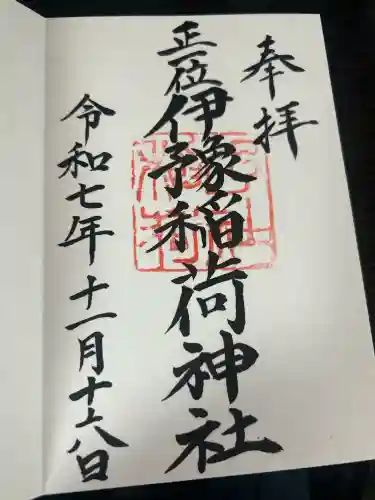 奉拝
正一位伊豫稲荷神社
令和七年十一月十八日